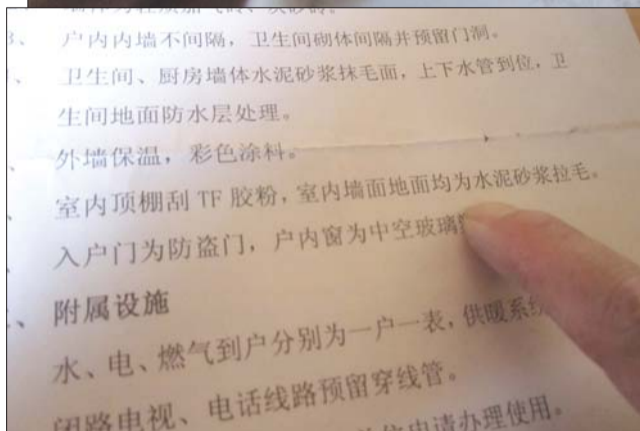 3、 户内内墙不间隔，卫生间砌体间隔并预留门洞。
、 卫生间、厨房墙体水泥砂浆抹毛面，上下水管到位，卫
生间地面防水层处理。
、 外墙保温，彩色涂料。
、 室内顶棚刮 TF 胶粉，室内墙面地面均为水泥砂浆拉毛。
入户门为防盗门，户内窗为中空玻璃
、 附属设施
水、电、燃气到户分别为一户一表，供暖系统
闭路电视、电话线路预留穿线管。
申请办理使用。